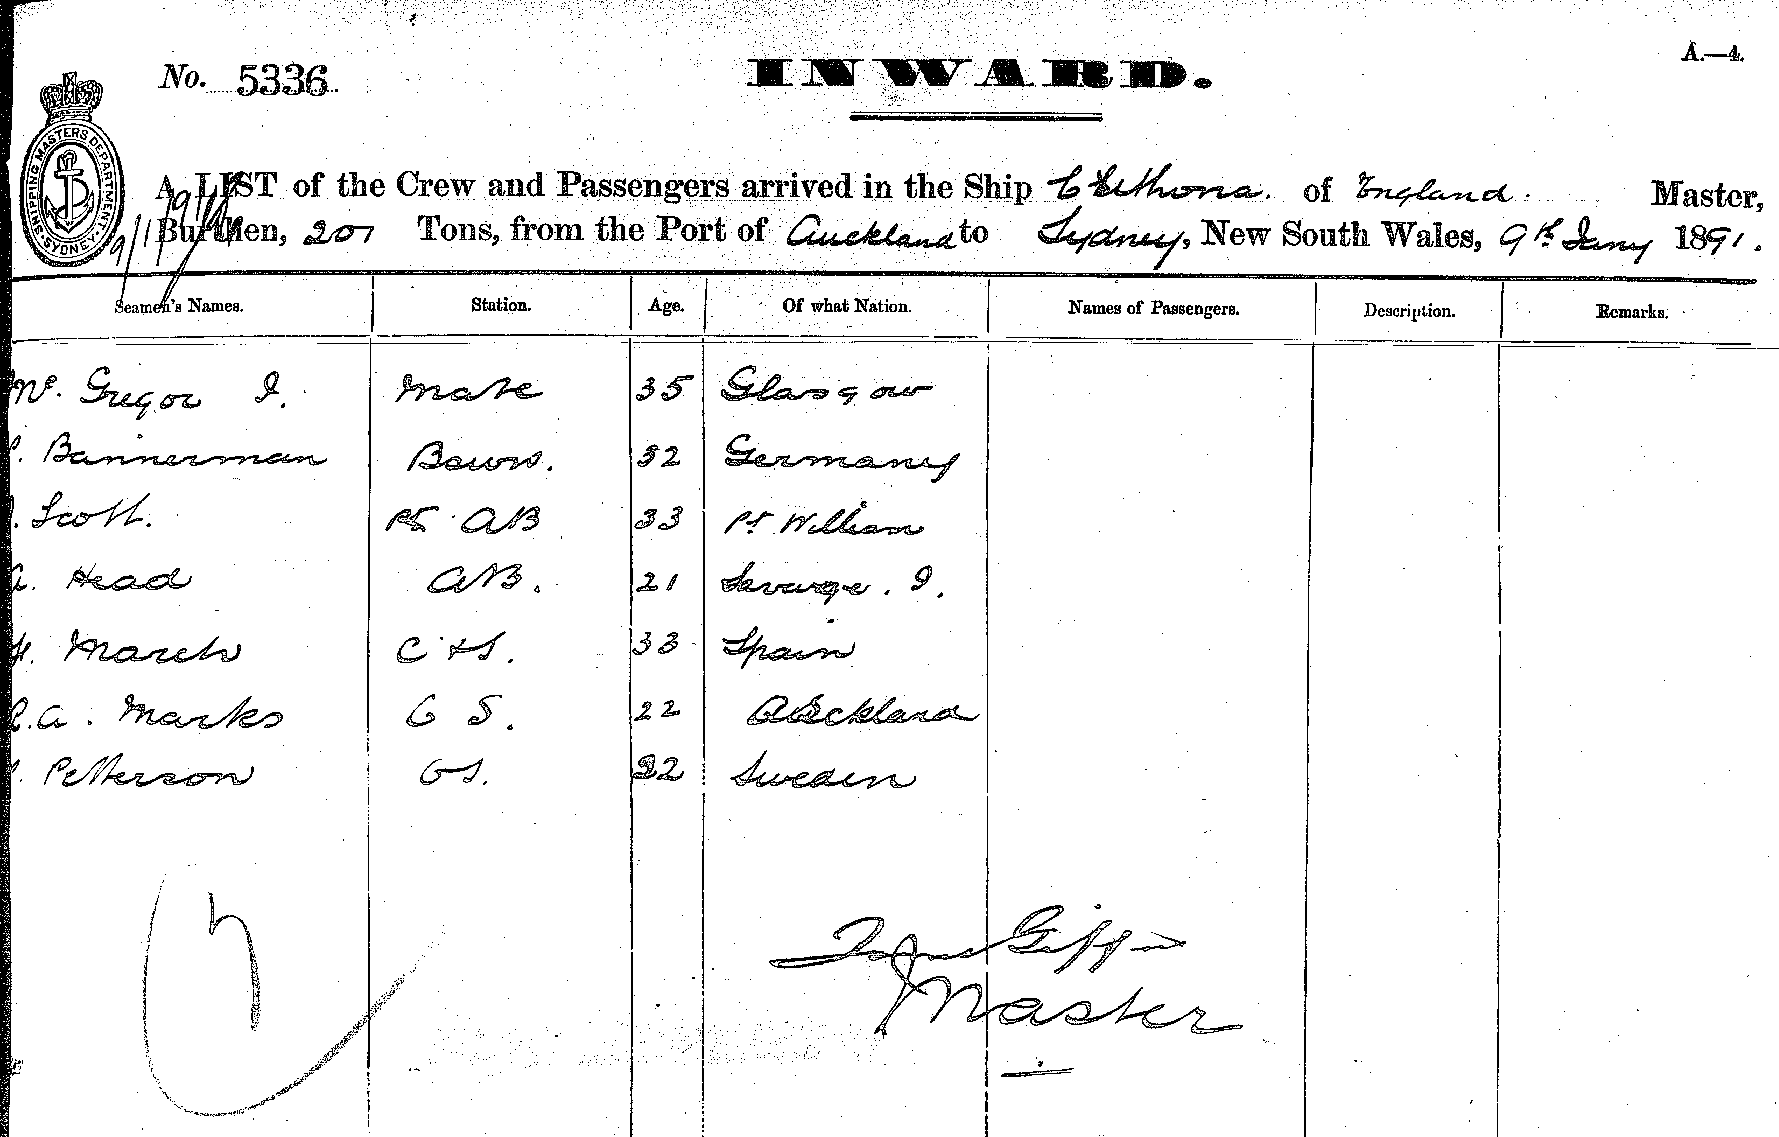 A.—4.
No. 5336
INWARD.
SHIPPING MASTERS DEPARTMENT. SYDNEY.
A LIST of the Crew and Passengers arrived in the Ship of England. Master,
Burthen, 201 Tons, from the Port of Auckland to Sydney, New South Wales, 9th Jany 1891.
Seamen's Names. Station. Age. Of what Nation. Names of Passengers. Description. Remarks.
Mc. Gregor J. Mate 35 Glasgow
Bannerman Bosun. 32 Germany
Scott. AB 33 Pt William
A. Head AB. 21 Savage. I.
H. March C & S. 33 Spain
A. Marks O S. 22 Auckland
Petterson OS. 22 Sweden
7
Master